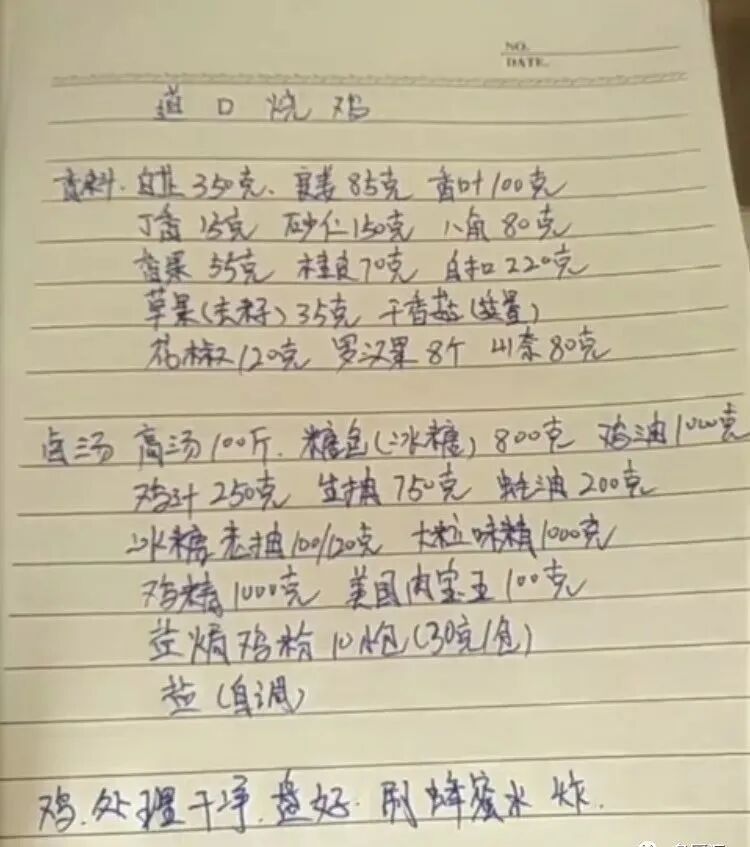 NO.
DATE.
道口烧鸡
香料.白芷350克、良姜85克 香叶100克
丁香15克 砂仁150克 八角80克
香果55克 桂皮70克 白扣220克
草果(去籽)35克 干香菇(适量)
花椒120克 罗汉果8个 山奈80克
卤汤 高汤100斤. 糖色(冰糖)800克 鸡油1000克
鸡汁250克 生抽750克 蚝油200克
冰糖老抽100/120克 大粒味精1000克
鸡精1000克 美国肉宝王100克
盐焗鸡粉10小包(30克/包)
盐(自调)
鸡.处理干净.盘好.刷蜂蜜水 炸.